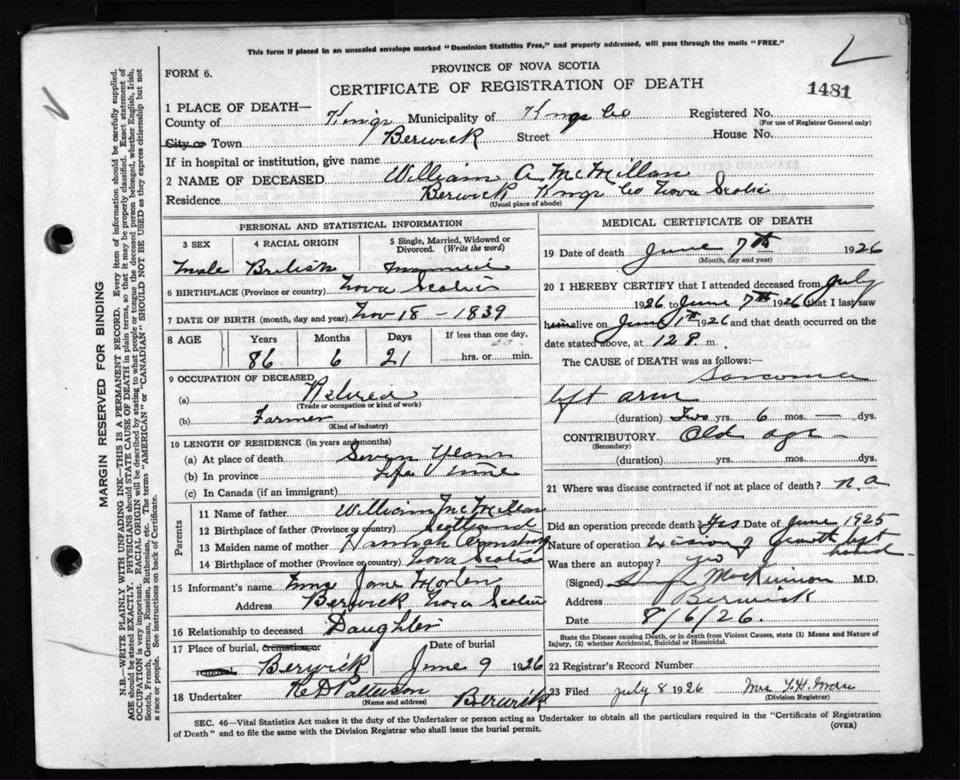 This form if placed in an unsealed envelope marked "Dominion Statistics Free," and properly addressed, will pass through the mails "FREE."
PROVINCE OF NOVA SCOTIA
FORM 6.
CERTIFICATE OF REGISTRATION OF DEATH
1481
1 PLACE OF DEATH—
County of Kings Municipality of Kings Co Registered No.
(For use of Registrar General only)
City or Town Berwick Street House No.
If in hospital or institution, give name
2 NAME OF DECEASED William A McMillan
Residence Berwick Kings Co Nova Scotia
(Usual place of abode)
PERSONAL AND STATISTICAL INFORMATION
3 SEX 4 RACIAL ORIGIN 5 Single, Married, Widowed or Divorced. (Write the word)
Male British
6 BIRTHPLACE (Province or country) Nova Scotia
7 DATE OF BIRTH (month, day and year) Nov 18 - 1839
8 AGE Years Months Days If less than one day,
86 6 21 hrs. or min.
9 OCCUPATION OF DECEASED
(a) Retired
(Trade or occupation or kind of work)
(b) Farmer
(Kind of industry)
10 LENGTH OF RESIDENCE (in years and months)
(a) At place of death Seven Years
(b) In province Life time
(c) In Canada (if an immigrant)
Parents
11 Name of father William McMillan
12 Birthplace of father (Province or country) Scotland
13 Maiden name of mother Hannah Armstrong
14 Birthplace of mother (Province or country) Nova Scotia
15 Informant's name Jane
Address Berwick Nova Scotia
16 Relationship to deceased Daughter
17 Place of burial, cremation or removal Date of burial
Berwick June 9 1926
18 Undertaker Berwick
(Name and address)
MEDICAL CERTIFICATE OF DEATH
19 Date of death June 7th 1926
(Month, day and year)
20 I HEREBY CERTIFY that I attended deceased from July
1926 to June 7th 1926 that I last saw
him alive on June 1st 1926 and that death occurred on the
date stated above, at 12 P. m.
The CAUSE of DEATH was as follows:
Sarcoma
left arm
(duration) Two yrs. 6 mos. — dys.
CONTRIBUTORY Old age -
(Secondary)
(duration) yrs. mos. dys.
21 Where was disease contracted if not at place of death? n.a
Did an operation precede death? Yes Date of June 1925
Nature of operation Excision of Growth left hand -
Was there an autopsy? no
(Signed) MacKinnon M.D.
Address Berwick
Date 8/6/26.
State the Disease causing Death, or in death from Violent Causes, state (1) Means and Nature of Injury, (2) whether Accidental, Suicidal or Homicidal.
22 Registrar's Record Number
23 Filed July 8 1926 Mrs
(Division Registrar)
SEC. 46—Vital Statistics Act makes it the duty of the Undertaker or person acting as Undertaker to obtain all the particulars required in the "Certificate of Registration
of Death" and to file the same with the Division Registrar who shall issue the burial permit.
(OVER)
MARGIN RESERVED FOR BINDING
N.B.—WRITE PLAINLY WITH UNFADING INK—THIS IS A PERMANENT RECORD. Every item of information should be carefully supplied.
AGE should be stated EXACTLY. PHYSICIANS should STATE CAUSE OF DEATH in plain terms, so that it may be properly classified. Exact statement of
OCCUPATION is very important. RACIAL ORIGIN will be described by stating to what people or tongue the deceased person belonged, whether English, Irish,
Scotch, French, German, Russian, Ruthenian, etc. The terms "AMERICAN" or "CANADIAN" SHOULD NOT BE USED as they express citizenship but not
a race or people. See instructions on back of Certificate.